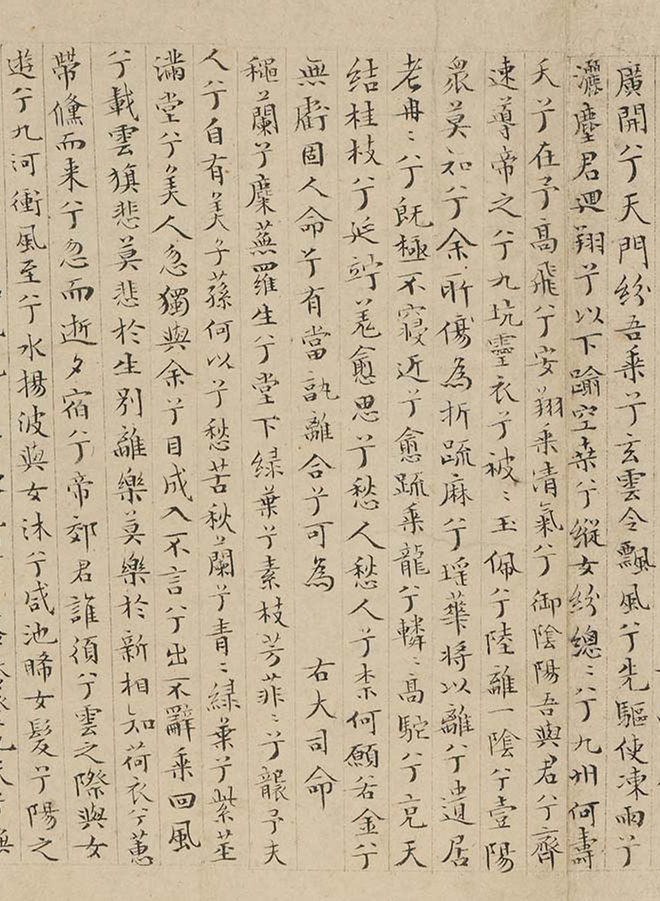 廣開兮天門紛吾乘兮玄雲令飄風兮先驅使凍雨兮
灑塵君迴翔兮以下踰空桒兮縱女紛緫〻兮九州何壽
夭兮在予高飛兮安翔乘清氣兮御陰陽吾與君兮齊
速導帝之兮九坑靈衣兮被〻玉佩兮陸離一陰兮壹陽
衆莫知兮余所傷為折疏麻兮瑤華將以離兮遺居
老冉〻兮既極不寖近兮愈疏乘龍兮轔〻高駝兮天
結桂枝兮延竚羌愈思兮愁人愁人兮柰何願若金兮
無虧固人命兮有當孰離合兮可為 右大司命
穐蘭兮麋蕪羅生兮堂下緑葉兮素枝芳菲〻兮襲予夫
人兮自有美子蓀何以兮愁苦秋蘭兮青〻緑葉兮紫莖
滿堂兮美人忽獨與余兮目成入不言兮出不辭乘回風
兮載雲旗悲莫悲於生別離樂莫樂於新相知荷衣兮蕙
帶儵而来兮忽而逝夕宿兮帝郊君誰須兮雲之際與女
遊兮九河衝風至兮水揚波與女沐兮咸池晞女髮兮陽之